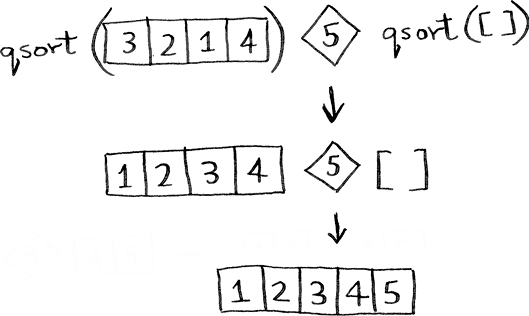 qsort([3 2 1 4]) 5 qsort([ ])
1 2 3 4 5 [ ]
1 2 3 4 5